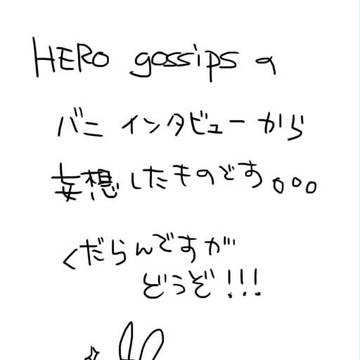 HERO gossips の
バニ インタビューから
妄想したものです。。。
くだらんですが
どうぞ!!!